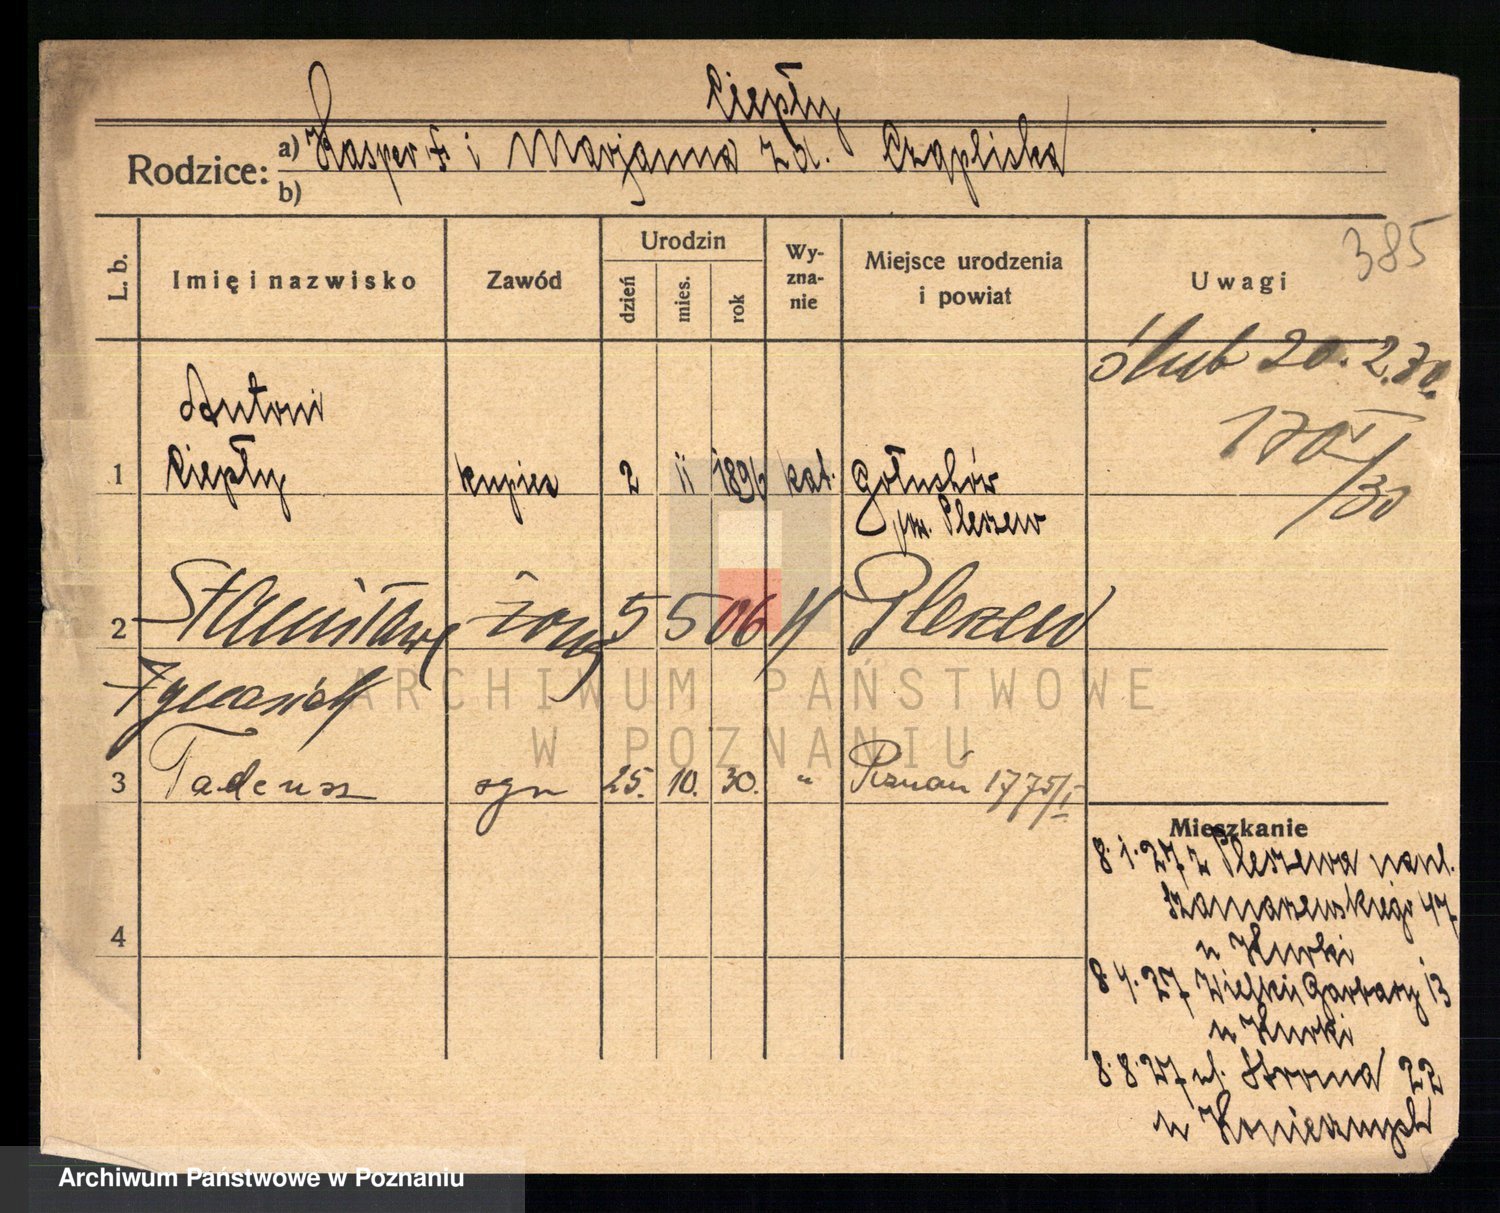 Ciepły
Rodzice: a) Kasper † i Marjanna zd. Czaplicka
b)
385
L. b. Imię i nazwisko Zawód Urodzin dzień mies. rok Wyznanie Miejsce urodzenia i powiat Uwagi
ślub 20.2.30.
170 I/30
Antoni
1 Ciepły kupiec 2 11 1896 kat. Gołuchów
pw. Pleszew
2 Stanisława żona 5 5 06 Pleszew
3 Tadeusz syn 25. 10. 30. " Poznań 1775/I
4
Mieszkanie
8.1.27 z Pleszewa
Szamarzewskiego 47
u Kurki
8.4.27 Wielkie Garbary 13
u Kurki
8.8.27 ul. Stroma 22
u
ARCHIWUM PAŃSTWOWE
W POZNANIU
Archiwum Państwowe w Poznaniu